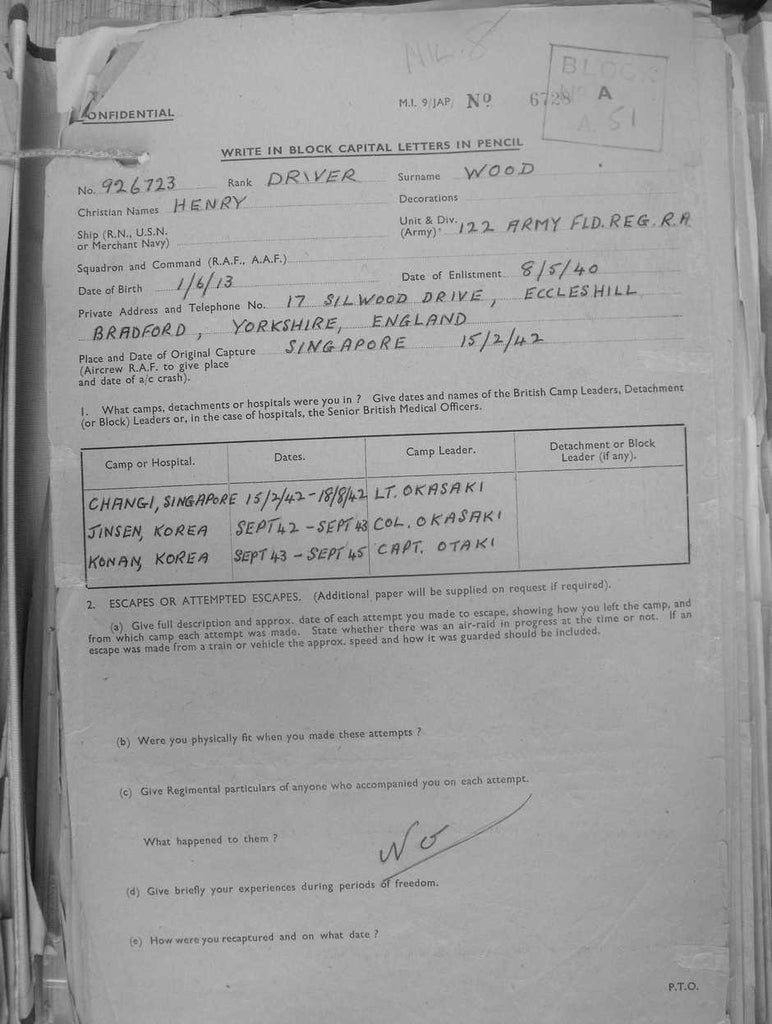 NIL. 8
BLOCK
A
A. 51
CONFIDENTIAL
M.I. 9/JAP/ No 6728
WRITE IN BLOCK CAPITAL LETTERS IN PENCIL
No. 926723 Rank DRIVER Surname WOOD
Christian Names HENRY Decorations
Ship (R.N., U.S.N. or Merchant Navy) Unit & Div. (Army) 122 ARMY FLD. REG. R.A
Squadron and Command (R.A.F., A.A.F.)
Date of Birth 1/6/13 Date of Enlistment 8/5/40
Private Address and Telephone No. 17 SILWOOD DRIVE, ECCLESHILL
BRADFORD, YORKSHIRE, ENGLAND
Place and Date of Original Capture SINGAPORE 15/2/42
(Aircrew R.A.F. to give place
and date of a/c crash).
1. What camps, detachments or hospitals were you in ? Give dates and names of the British Camp Leaders, Detachment
(or Block) Leaders or, in the case of hospitals, the Senior British Medical Officers.
Camp or Hospital. Dates. Camp Leader. Detachment or Block Leader (if any).
CHANGI, SINGAPORE 15/2/42 - 18/8/42 LT. OKASAKI
JINSEN, KOREA SEPT 42 - SEPT 43 COL. OKASAKI
KONAN, KOREA SEPT 43 - SEPT 45 CAPT. OTAKI
2. ESCAPES OR ATTEMPTED ESCAPES. (Additional paper will be supplied on request if required).
(a) Give full description and approx. date of each attempt you made to escape, showing how you left the camp, and
from which camp each attempt was made. State whether there was an air-raid in progress at the time or not. If an
escape was made from a train or vehicle the approx. speed and how it was guarded should be included.
(b) Were you physically fit when you made these attempts ?
(c) Give Regimental particulars of anyone who accompanied you on each attempt.
What happened to them ?
No
(d) Give briefly your experiences during periods of freedom.
(e) How were you recaptured and on what date ?
P.T.O.